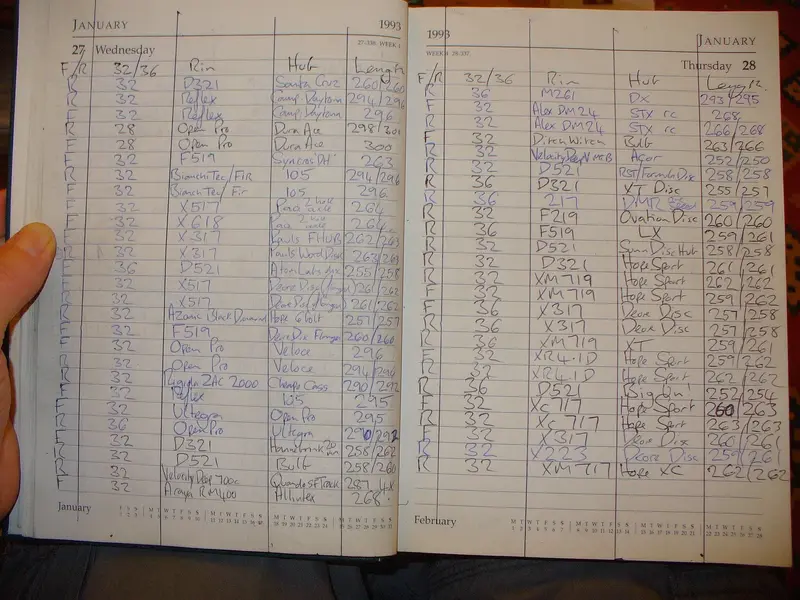 JANUARY 1993
27 Wednesday 27-338. WEEK 4
F/R 32/36 Rim Hub Length
R 32 D321 Santa Cruz 260/260
R 32 Reflex Camp Daytona 294/296
F 32 Reflex Camp Daytona 296
R 28 Open Pro Dura Ace 298/301
F 28 Open Pro Dura Ace 300
F 32 F519 Syncros DH 263
R 32 Bianchi Tec/FIR 105 294/296
F 32 Bianchi Tec/Fir 105 296
32 X517 264
32 X618 264
32 X317 Pauls F HUB 262/263
32 X317 Pauls Word Disc 263/263
F 36 D521 Atom Lab 255/258
32 X517 Deore Disc 261/262
R 32 X517 Deore Disc 261/262
R 32 Hope 6 bolt 257/257
F 32 F519 Deore Disc 260/260
F 32 Open Pro Veloce 296
R 32 Open Pro Veloce 294/296
R 32 Rigida ZAC 2000 Cheapo Cass 290/292
F 32 Reflex 105 295
F 32 Ultegra Open Pro 295
R 36 Open Pro Ultegra 290/292
F 32 D321 258/262
R 32 D521 Bulb 258/260
R 32 Velocity Deep 700c 287 4x
F 32 Araya RM400 Altivetex 268
January
1993 JANUARY
WEEK 4 28-337. Thursday 28
F/R 32/36 Rim Hub Length
R 36 M261 Dx 293/295
F 32 Alex DM24 STX rc 268
R 32 Alex DM24 STX rc 266/268
F 32 Ditch Witch Bulb 263/266
R 32 Velocity Acor 252/250
R 32 D521 RST/Formula Disc 258/258
R 36 D321 XT Disc 255/257
R 36 217 DMR 259/259
R 32 F219 Ovation Disc 260/260
R 36 F519 LX 259/261
R 32 D521 Sun Disc Hub 258/258
R 32 D321 Hope Sport 261/261
F 32 XM719 Hope Sport 262/262
R 32 XM719 Hope Sport 259/262
F 36 X317 Deore Disc 257/258
R 36 X317 Deore Disc 257/258
R 36 XM719 XT 259/261
F 32 XR4.1D Hope Sport 259/262
R 32 XR4.1D Hope Sport 262/262
R 36 D521 Big Un 252/254
R 32 Xc 717 Hope Sport 260/263
F 32 Xc 717 Hope Sport 263/263
R 36 X317 Deore Disc 260/261
R 32 X223 Deore Disc 259/261
R 32 XM717 Hope XC 262/262
February